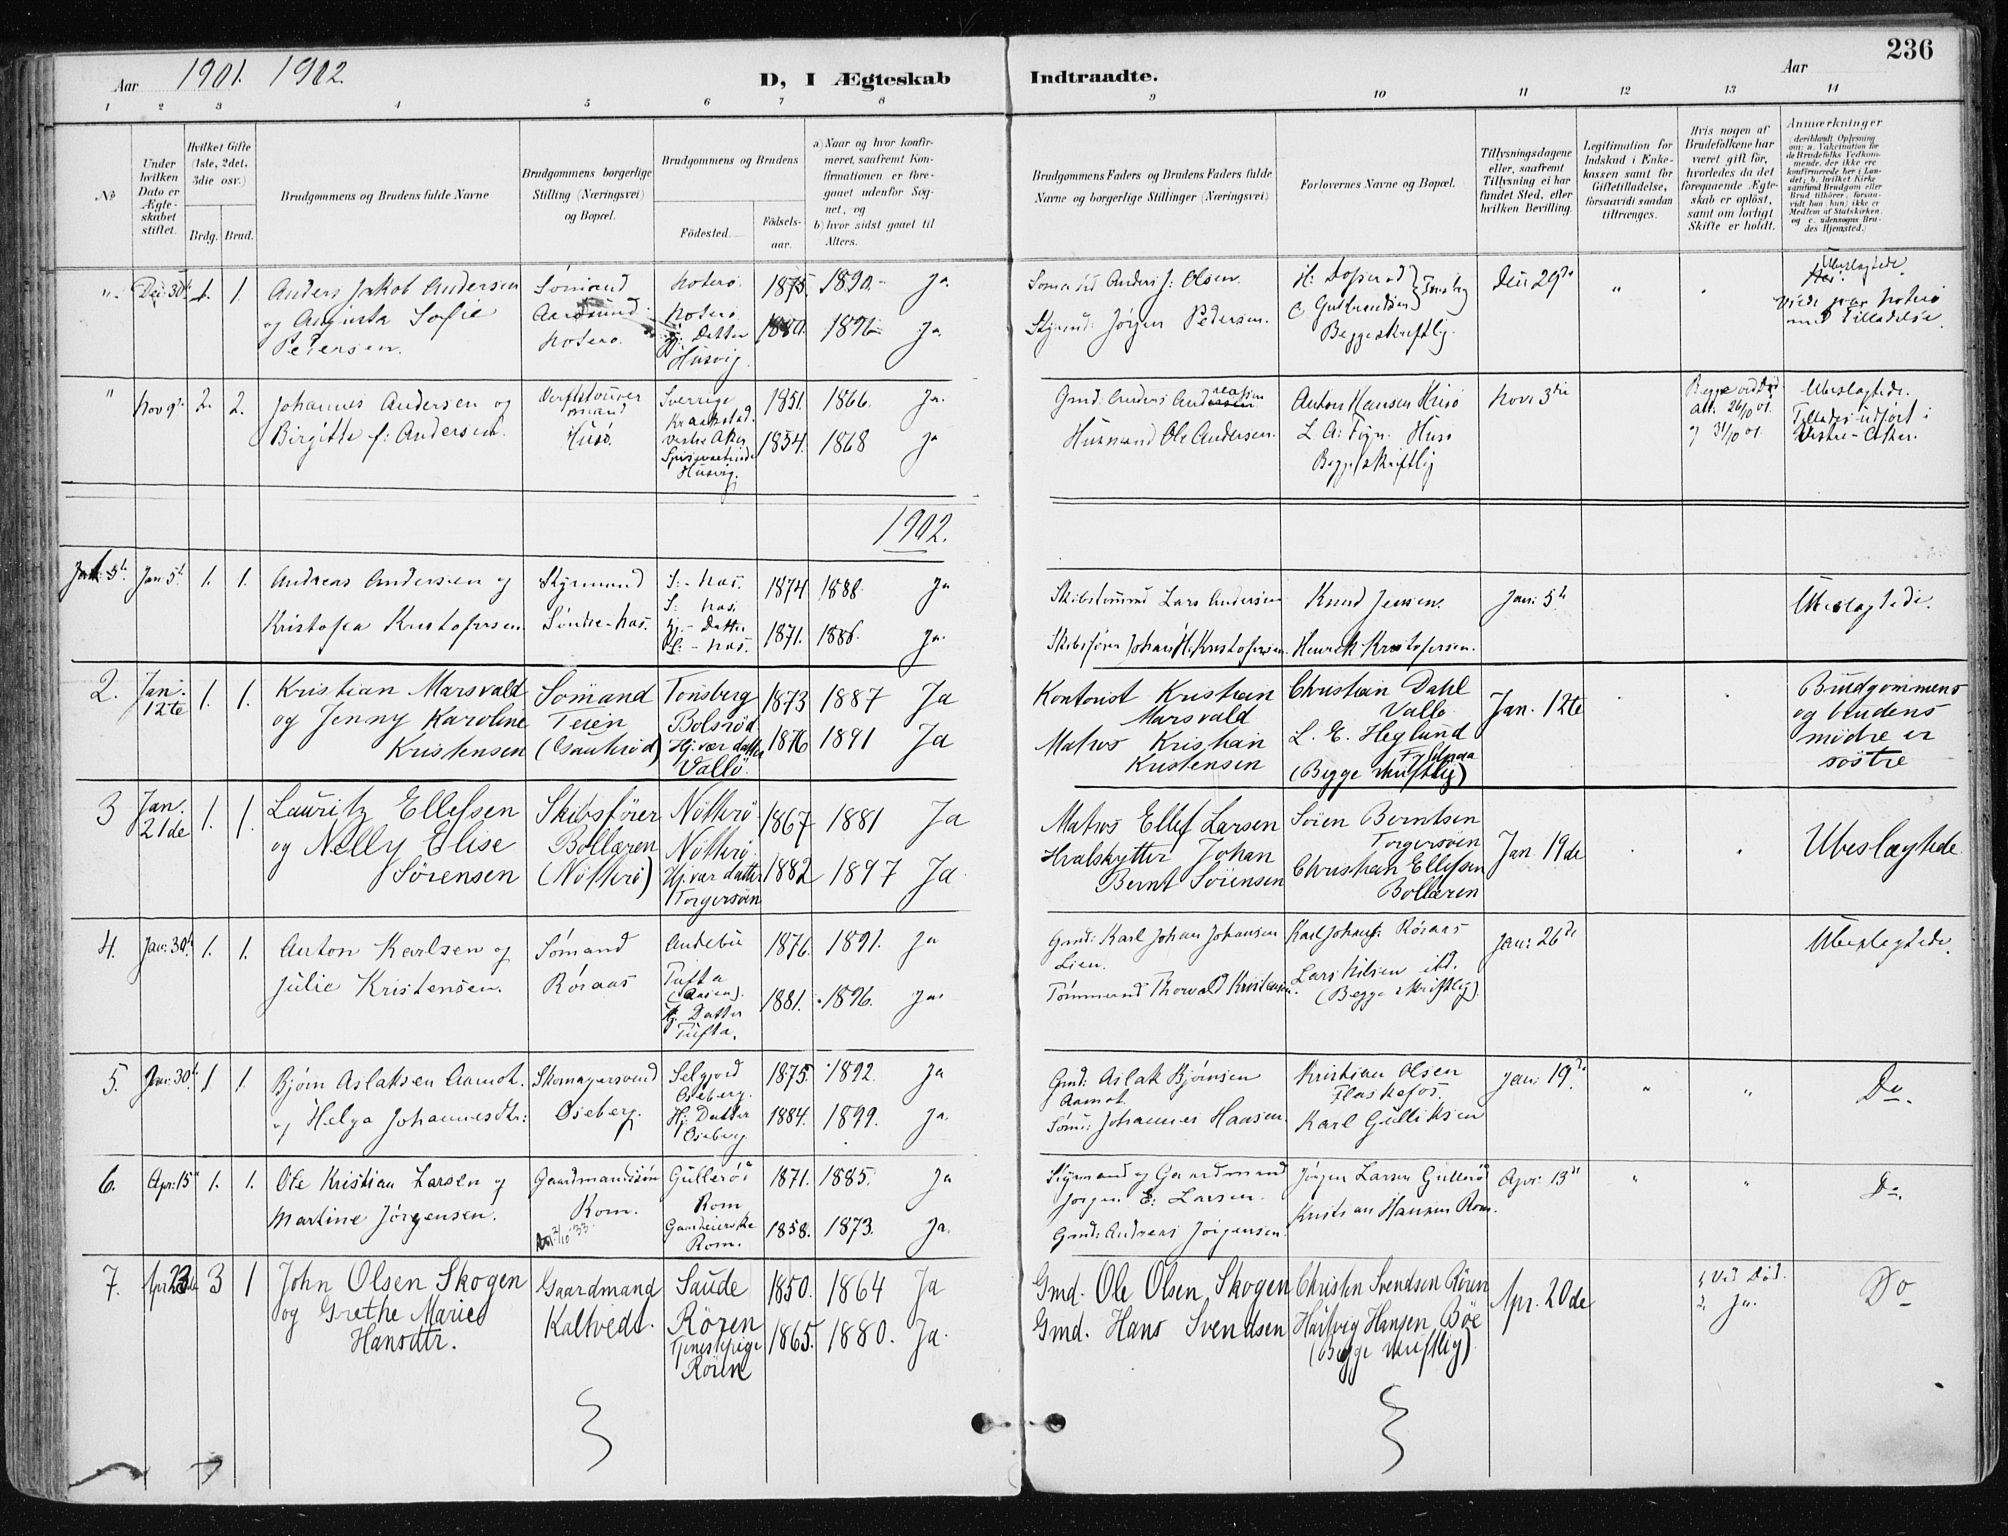 236
Aar 1901. 1902.
D, I Ægteskab Indtraadte.
Aar
1 2 3 4 5 6 7 8 9 10 11 12 13 14
No
Under hvilken Dato er Ægteskabet stiftet.
Hvilket Gifte (1ste, 2det, 3die osv.)
Brdg. Brud.
Brudgommens og Brudens fulde Navne
Brudgommens borgerlige Stilling (Næringsvei) og Bopæl.
Brudgommens og Brudens
Fødested. Fødselsaar.
a) Naar og hvor konfirmeret, saafremt Konfirmationen er foregaaet udenfor Sognet, og
b) hvor sidst gaaet til Alters.
Brudgommens Faders og Brudens Faders fulde Navne og borgerlige Stillinger (Næringsvei)
Forlovernes Navne og Bopæl.
Tillysningsdagene eller, saafremt Tillysning ei har fundet Sted, efter hvilken Bevilling.
Legitimation for Indskud i Enkekassen samt for Giftetilladelse, forsaavidt saadan tiltrænges.
Hvis nogen af Brudefolkene har været gift før, hvorledes da det foregaaende Ægteskab er opløst, samt om lovligt Skifte er holdt.
Anmærkninger
" Dec: 30te 1. 1.
Anders Jakob Andersen
og Augusta Sofie
Petersen.
Sømand
Aarøsund
Noterø.
Noterø
Noterø
Hj: Datter
Husvig.
1875. 1890. Ja.
1880. 1896 Ja.
Sømand Anders J: Olsen.
Styrmd: Jørgen Pedersen.
Begge skriftlig.
Dec 29de
" "
Ubeslægtede.
Viede paa Noterø
med Tilladelse.
" Nov 9de 2. 2.
Johannes Andersen og
Birgitte f: Andersen.
Husø.
Sverrige
Kraakstad.
Vestre Aker
Husvig.
1851. 1866. Ja.
1854. 1868 Ja
Gmd: Anders Andreassen
Husmand Ole Andersen.
Anton Hansen Husø
Husø
Begge skriftlig
Nov: 3die
Begge ved Død
Att. 26/10 01.
og 31/10 01.
Ubeslægtede.
Vestre-Aker.
1902.
Jan: 5te 1. 1.
Andreas Andersen og
Kristofea Kristofersen.
Styrmand
Søndre-Nas.
S: - Nas.
S: Nas.
Hj: - Datter
S: - Nas.
1874. 1888. Ja
1871. 1886. Ja.
Skibstømmd Lars Andersen
Skibsfører Johan H. Kristofersen.
Knud Jensen.
Henrik Kristofersen.
Jan: 5te
Ubeslægtede.
2. Jan. 12te 1. 1.
Kristian Marsvald
og Jenny Karoline
Kristensen
Sømand
Teien
Tønsberg
Bolsrød
Hj. vær. datter
Vallø
1873 1887 Ja
1876 1891 Ja
Kontorist Kristian
Marsvald
Matros Kristian
Kristensen
Christian Dahl
Vallø
L. E. Heglund
(Begge skriftlig)
Jan. 12te
Brudgommens
og brudens
mødre er
søstre
3 Jan. 21de 1. 1.
Lauritz Ellefsen
og Nelly Elise
Sørensen
Skibsfører
Bollæren
(Nøtterø)
Nøtterø
Nøtterø
Hj. vær datter
Torgersøen
1867 1881 Ja
1882 1897 Ja
Matros Ellef Larsen
Hvalskytter Johan
Bernt Sørensen
Søren Berntsen
Torgersøen
Christian Ellefsen
Bollæren
Jan. 19de
Ubeslægtede
4. Jan: 30te 1. 1.
Anton Karlsen og
Julie Kristensen.
Sømand
Røraas
Andebu
Tufta
(Aasen).
Hj. Datter
Tufta.
1876. 1891. Ja
1881. 1896. Ja.
Gmd: Karl Johan Johansen
Lien.
Tømmermd Thorvald Kristensen.
Karl Johans: Røraas
Lars Nilsen ibd.
(Begge skriftlig).
Jan: 26de
Ubeslægtede.
5. Jan: 30te 1. 1.
Bjørn Aslaksen Aamot.
og Helga Johannesdtr:
Skomagersvend
Oseberg.
Selgjord
Oseberg.
Hj: Datter
Oseberg
1875. 1892. Ja
1884. 1899. Ja.
Gmd: Aslak Bjørnsen
Aamot.
Sømd: Johannes Hansen.
Kristian Olsen
Flaskefos.
Karl Gulliksen
Jan: 19de
" "
Do.
6. Apr: 15de 1. 1.
Ole Kristian Larsen og
Martine Jørgensen.
Gaardmandssøn
Rom.
Gullerød
Rom
Gaardeierske
Rom.
1871. 1885. Ja
1858. 1873. Ja.
Styrmand og Gaardmand
Jørgen E: Larsen.
Gmd: Andreas Jørgensen.
Jørgen Larsen Gullerød
Kristian Hansen Rom.
Apr: 13de
" "
Do.
7. Apr 23de 3 1
John Olsen Skogen
og Grethe Marie
Hansdtr.
Gaardmand
Kaltvedt.
Saude
Røren
Tjenestepige
Røren
1850. 1864 Ja
1865. 1880. Ja.
Gmd. Ole Olsen Skogen
Gmd. Hans Svendsen
Christen Svendsen Røren
Hartvig Hansen Bøe
(Begge skriftlig)
Apr. 20de
1. Ved Død.
2. Ja.
Do